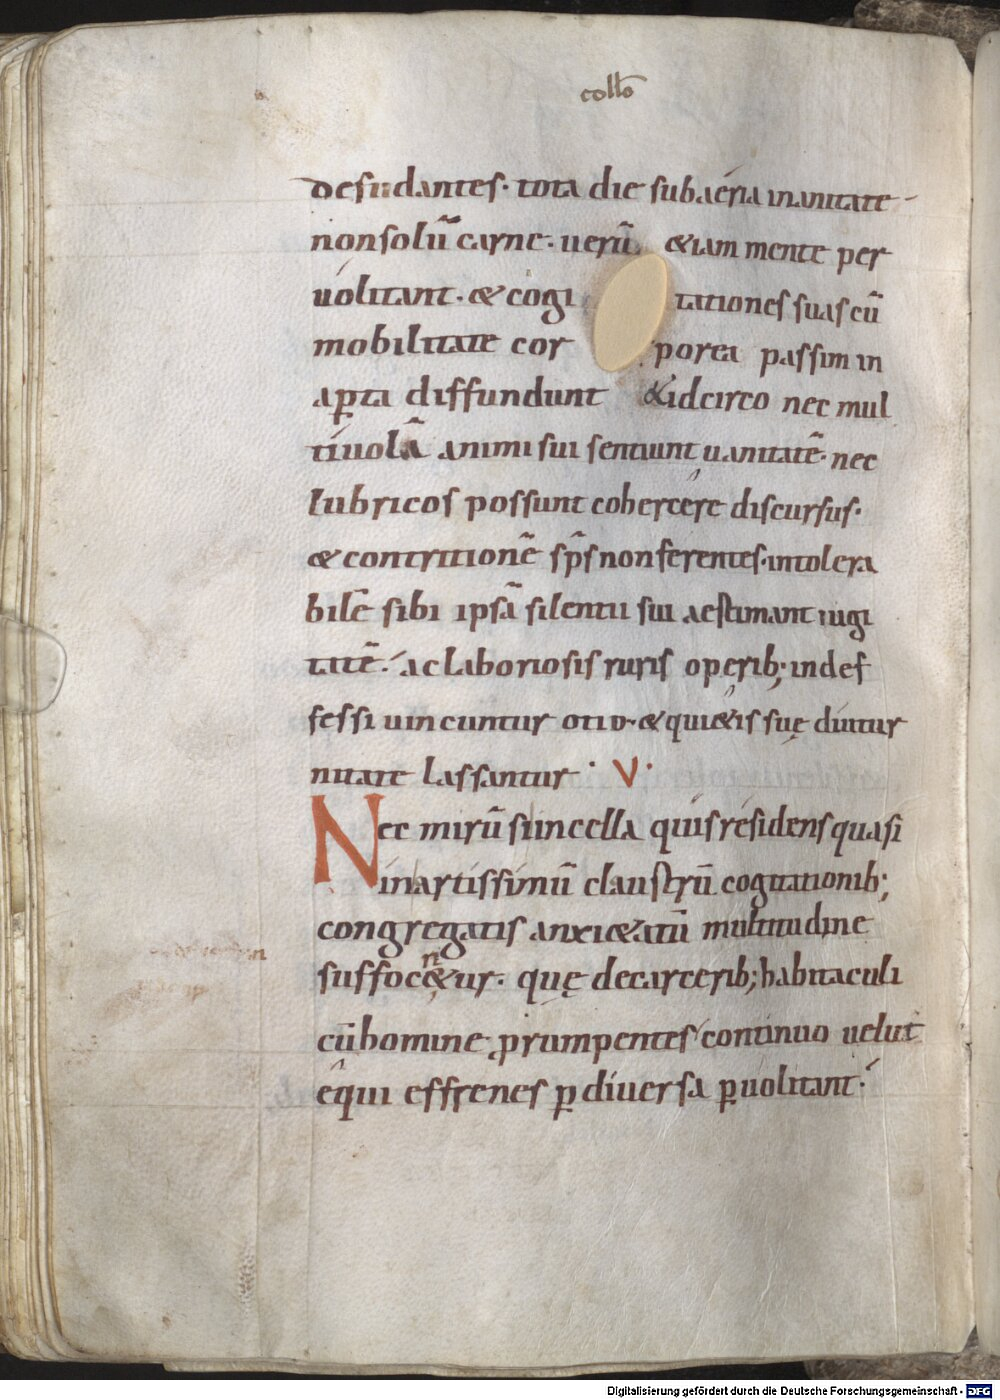 collō
desudantes· tota die sub aeria inanitate
non solū carne· uerū &iam mente per
uolitant· & cogi tationes suas cū
mobilitate cor porea passim in
aꝑta diffundunt &idcirco nec mul
tiuolā animi sui sentiunt uanitatē· nec
lubricos possunt cohercere discursus·
& contritionē sp̄s non ferentes· intolera
bilē sibi ipsā silentii sui aestimant iugi
tatē· ac laboriosis ruris operib; indef
fessi uincuntur otio· & qui&is suę diutur
nitate lassantur· V·
Nec mirū si in cella quis residens quasi
in artissimū claustrū cogitationib;
congregatis anxi&atū multitudine
suffoc&ur· n quę de carcerib; habitaculi
cū homine prumpentes continuo uelut
equi effrenes ꝑ diuersa ꝑuolitant·
Digitalisierung gefördert durch die Deutsche Forschungsgemeinschaft - DFG